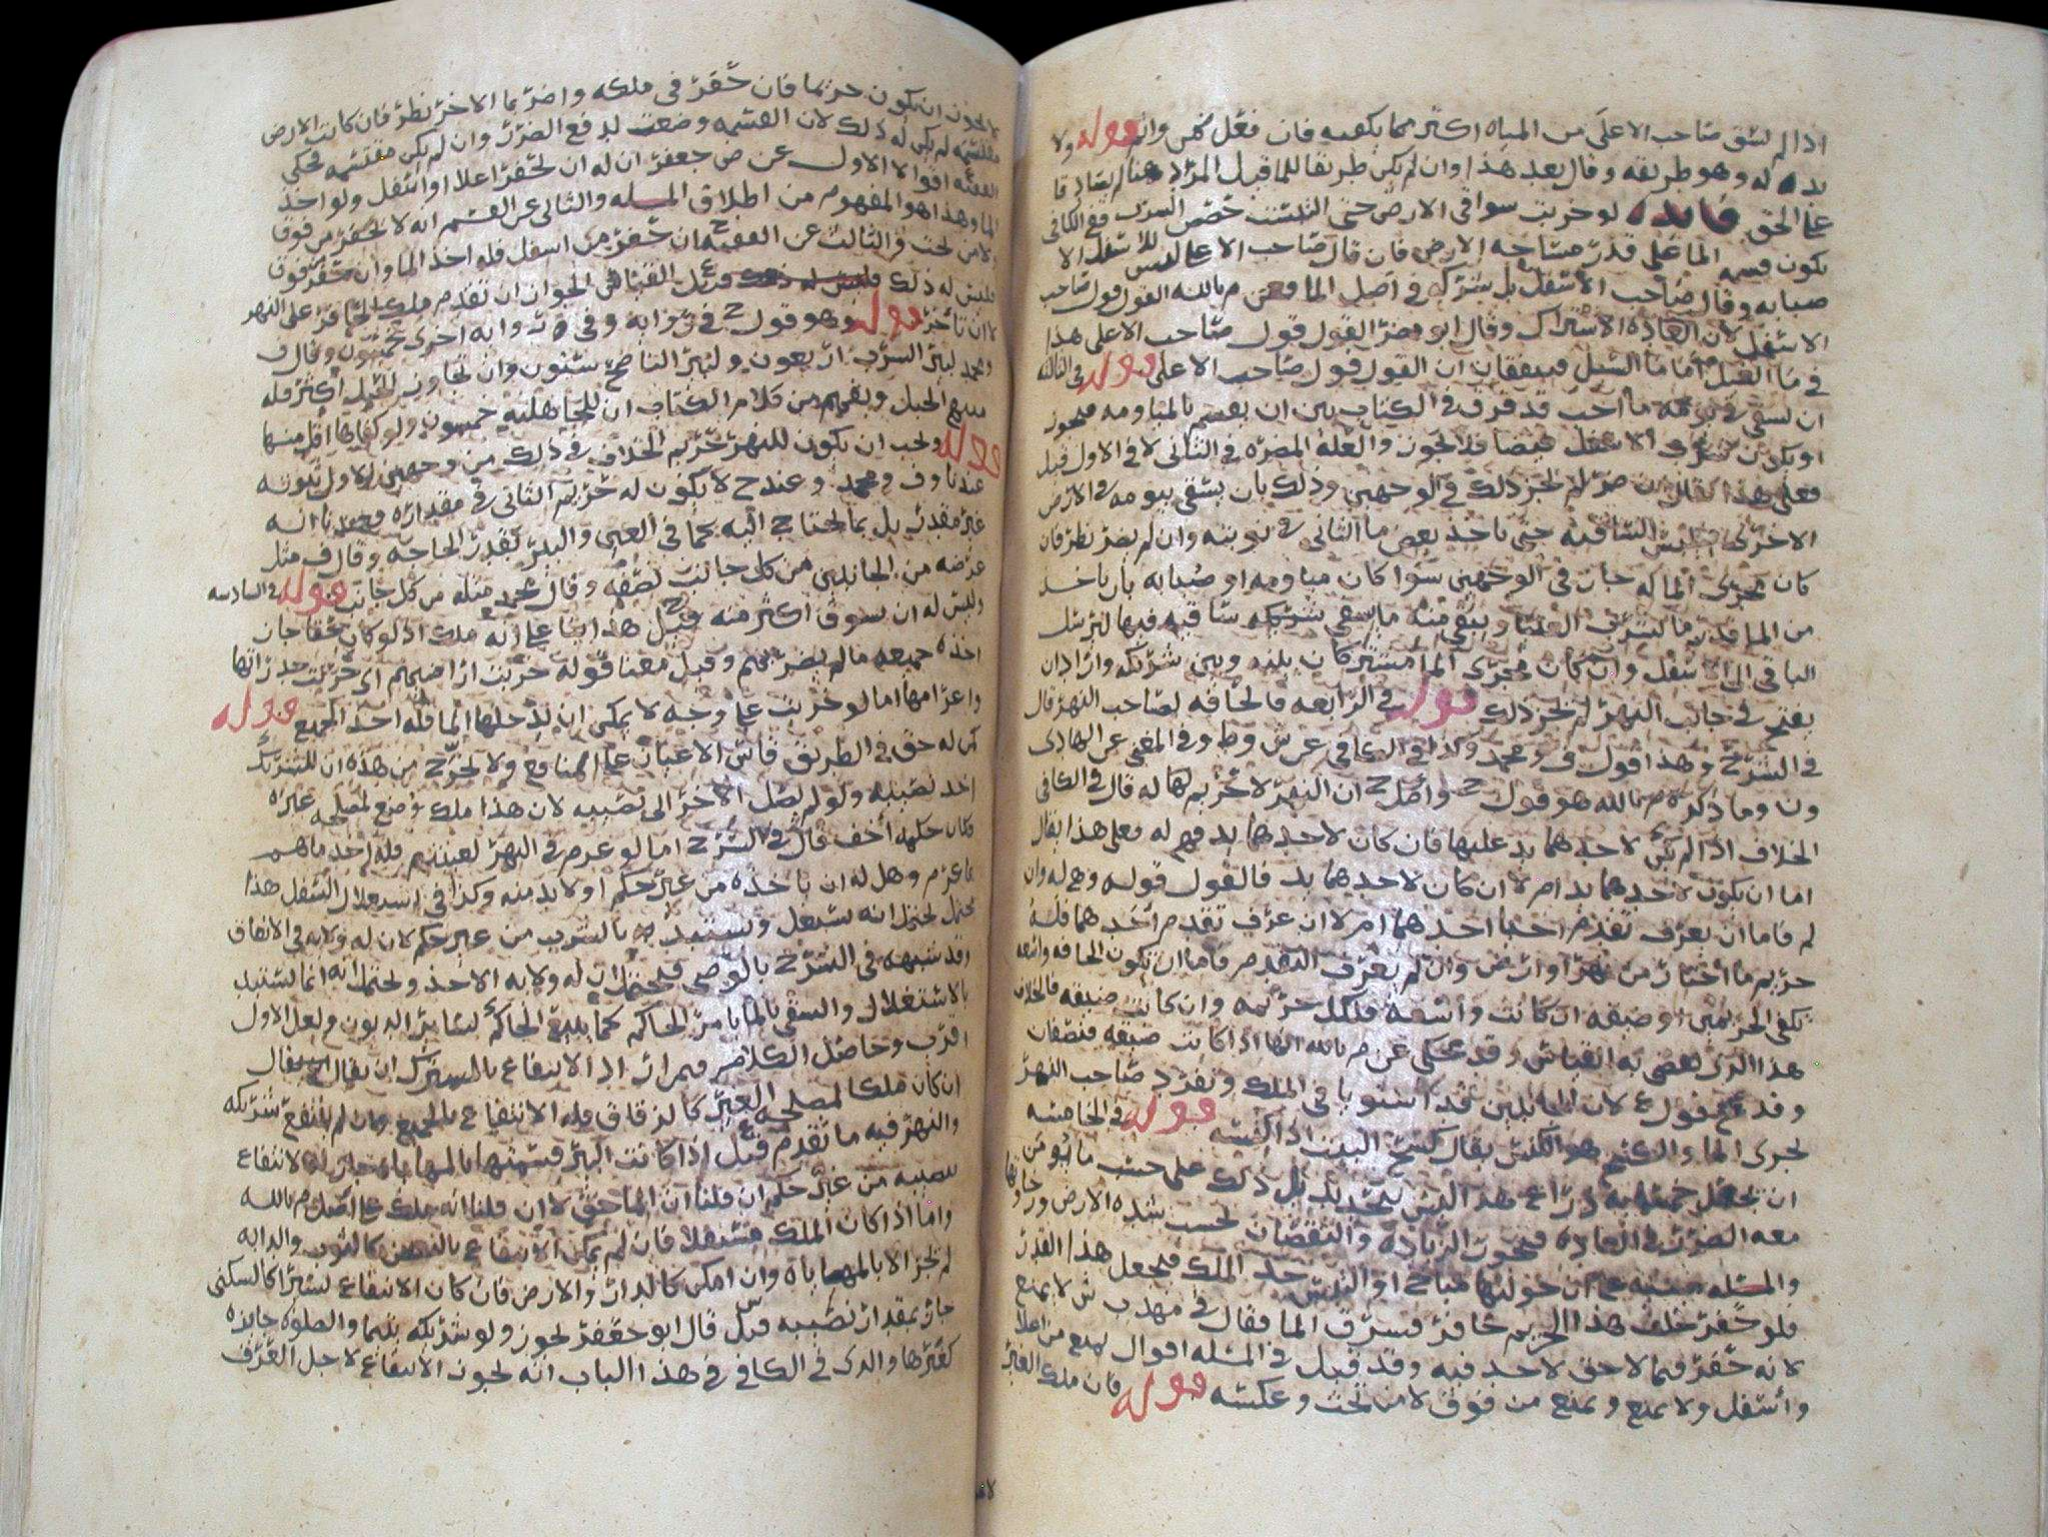 اذا لم يسق صاحب الاعلى من المياه اكثر مما يكفيه فان فعل ضمن واثم قوله ولا
بد له وهو طريقه وقال بعد هذا وان لم يكن طريقا للماء قبل المراد هنا لم يصادقا
على الحق فايده لو خربت سواقي الارض حتى التبست حصص الشرب ففي الكافي
يكون قسمه الما على قدر مساحه الارض فان قال صاحب الاعلى ليس للاسفل الا
صبابه وقال صاحب الاسفل بل مشترك في اصل الما م بالله القول قول صاحب
الاسفل لان العاده الاشتراك وقال ابو مضر القول قول صاحب الاعلى هذا
في ما الغيل فاما ما السيل فيتفقان ان القول قول صاحب الاعلى قوله في الثالثه
ان يسقي في يومه ما احب قد فرق في الكتاب بين ان يقسم بالمياومه فيجوز
او يكون شرب الاسفل فيضا فلا يجوز والعله المضره في الثاني لا في الاول قيل
فعلى هذا يقال ان ضر لم يجز ذلك في الوجهين وذلك بان يسقي بيومه في الارض
الاخرى الساقيه حتى ياخذ بعض ما الثاني في نوبته وان لم يضر نظر فان
كان مجرى الما له جاز في الوجهين سوا كان مياومه او صبابه بان ياخذ
من الما قدر ما يشرب العليا ويبقى منه ما يسقي شريكه ساقيه فيها ليرسل
الباقي الى الاسفل وان كان مجرى الما مشترك بينه وبين شريكه واراد ان
يفتح في جانب النهر لم يجز ذلك قوله في الرابعه فالحافه لصاحب النهر قال
في الشرح وهذا قول ف ومحمد وكذا في الكافي عن ش وط وفي المغني عن الهادي
ون وما ذكره م بالله هو قول ح واصل ح ان النهر لا حريم له قال في الكافي
الخلاف اذا لم يكن لاحدهما يد عليها فان كان لاحدهما يد فهي له فعلى هذا يقال
اما ان يكون لاحدهما يد ام لا ان كان لاحدهما يد فالقول قوله وهي له وان
لم فاما ان يعرف تقدم احيا احدهما ام لا ان عرف تقدم احدهما فله
حريم ما اختار من نهر او ارض وان لم يعرف التقدم فاما ان تكون الحافه واسعه
تكفي الحريمين او ضيقه ان كانت واسعه فلكل حريمه وان كانت ضيقه فالخلاف
هذا الذي يقضي به القياس وقد حكي عن م بالله انها اذا كانت ضيقه فنصفان
وقد قول ع لان الحايلين قد استويا في الملك وتفرد صاحب النهر
بجري الما والكسح هو الكنس يقال كسح البيت اذا كنسه قوله في الخامسه
ان يجعل خمسمايه ذراع هذا ليس بتحديد بل ذلك على حسب ما يؤمن
معه الضرر في العاده فتجوز الزياده والنقصان بحسب شده الارض ورخاوتها
والمسله مبنيه على ان حواليها مباح او التبس حد الملك فيجعل هذا القدر
فلو حفر خلف هذا الحريم حافر فسرق الما فقال في مهذب ش لا يمنع
لانه حفر فيما لا حق لاحد فيه وقد قيل في المسله اقوال يمنع من اعلا
واسفل ولا يمنع ويمنع من فوق لا من تحت وعكسه قوله فان ملك الغير
لا يجوز ان يكون حريما فان حفر في ملكه واضر بما الاخر نظر فان كانت الارض
مقتسمه لم يكن له ذلك لان القسمه وضعت لدفع الضرر وان لم يكن مقتسمه فحكى
الفقيه اقوالا الاول عن ض جعفر ان له ان يحفر اعلا او اسفل ولو اخذ
الما وهذا هو المفهوم من اطلاق المسله والثاني عن القسم انه لا يحفر من فوق
ولا من تحت والثالث عن الفقيه ان حفر من اسفل فله اخذ الما وان حفر من فوق
فليس له ذلك وقيل القياس الجواز ان تقدم ملك الحافر على النهر
لا ان تاخر قوله وهو قول ح في روايه وفي روايه اخرى خمسون وقال ف
ومحمد لبير الشرب اربعون ولبير الناضح ستون وان تجاوز الحبل اكثر فله
مبلغ الحبل ويفهم من كلام الكتاب ان للجاهليه خمسون ولو كفاها اقل منها
قوله ويجب ان يكون للنهر حريم الخلاف في ذلك من وجهين الاول ثبوته
عندنا وف ومحمد وعند ح لا يكون له حريم الثاني في مقداره وعندنا انه
غير مقدر بل بما يحتاج اليه كما في العين والبير بقدر الحاجه وقال ف مثل
عرضه من الجانبين من كل جانب نصفه وقال محمد مثله من كل جانب قوله في السادسه
وليس له ان يسوق اكثر منه قيل هذا بنا على انه ملك اذ لو كان حقا جاز
اخذه جميعه ما لم يضر بهم وقيل معنا قوله خربت اراضيهم اي خربت جدراتها
واعرامها اما لو خربت على وجه لا يمكن ان يدخلها الما فله اخذ الجميع قوله
كمن له حق في الطريق قاس الاعيان على المنافع ولا يخرج من هذه ان للشريك
اخذ نصيبه ولو لم يصل الاخر الى نصيبه لان هذا ملك وضع لمصلحه غيره
فكان حكمه اخف قال في الشرح اما لو غرم في النهر لغيبتهم فله اخذ ماهم
بما غرم وهل له ان ياخذه من غير حكم او لا بد منه وكذا في استعمال السفل هذا
يحتمل يحتمل انه يستعمل ويستبد بالشرب من غير حكم لان له ولايه في الانفاق
وقد شبهه في الشرح بالوصي فيحتمل ان له ولايه الاخذ ويحتمل انه انما يستبد
بالاستغلال والسقي بالما بامر الحاكم كما يبيع الحاكم لساير الديون ولعل الاول
اقرب وحاصل الكلام فيمن اراد الانتفاع بالمشترك ان يقال
ان كان ملكا لمصلحه الغير كالزقاق فله الانتفاع بالجميع وان لم ينتفع شريكه
والنهر فيه ما تقدم قيل اذا كانت البير قسمتها بالمهاياه جاز له الانتفاع
بنصيبه من غير حكم ان قلنا ان الما حق لا ان قلنا انه ملك على اصل م بالله
واما اذا كان الملك مستقلا فان لم يمكن الانتفاع بالبعض كالثوب والدابه
لم يجز الا بالمهاياه وان امكن كالدار والارض فان كان الانتفاع يسيرا كالسكنى
جاز بمقدار نصيبه قيل قال ابو جعفر يجوز ولو شريكه يتيما والصلوه جايزه
كغيرها والذي في الكافي في هذا الباب انه يجوز الانتفاع لاجل العرف